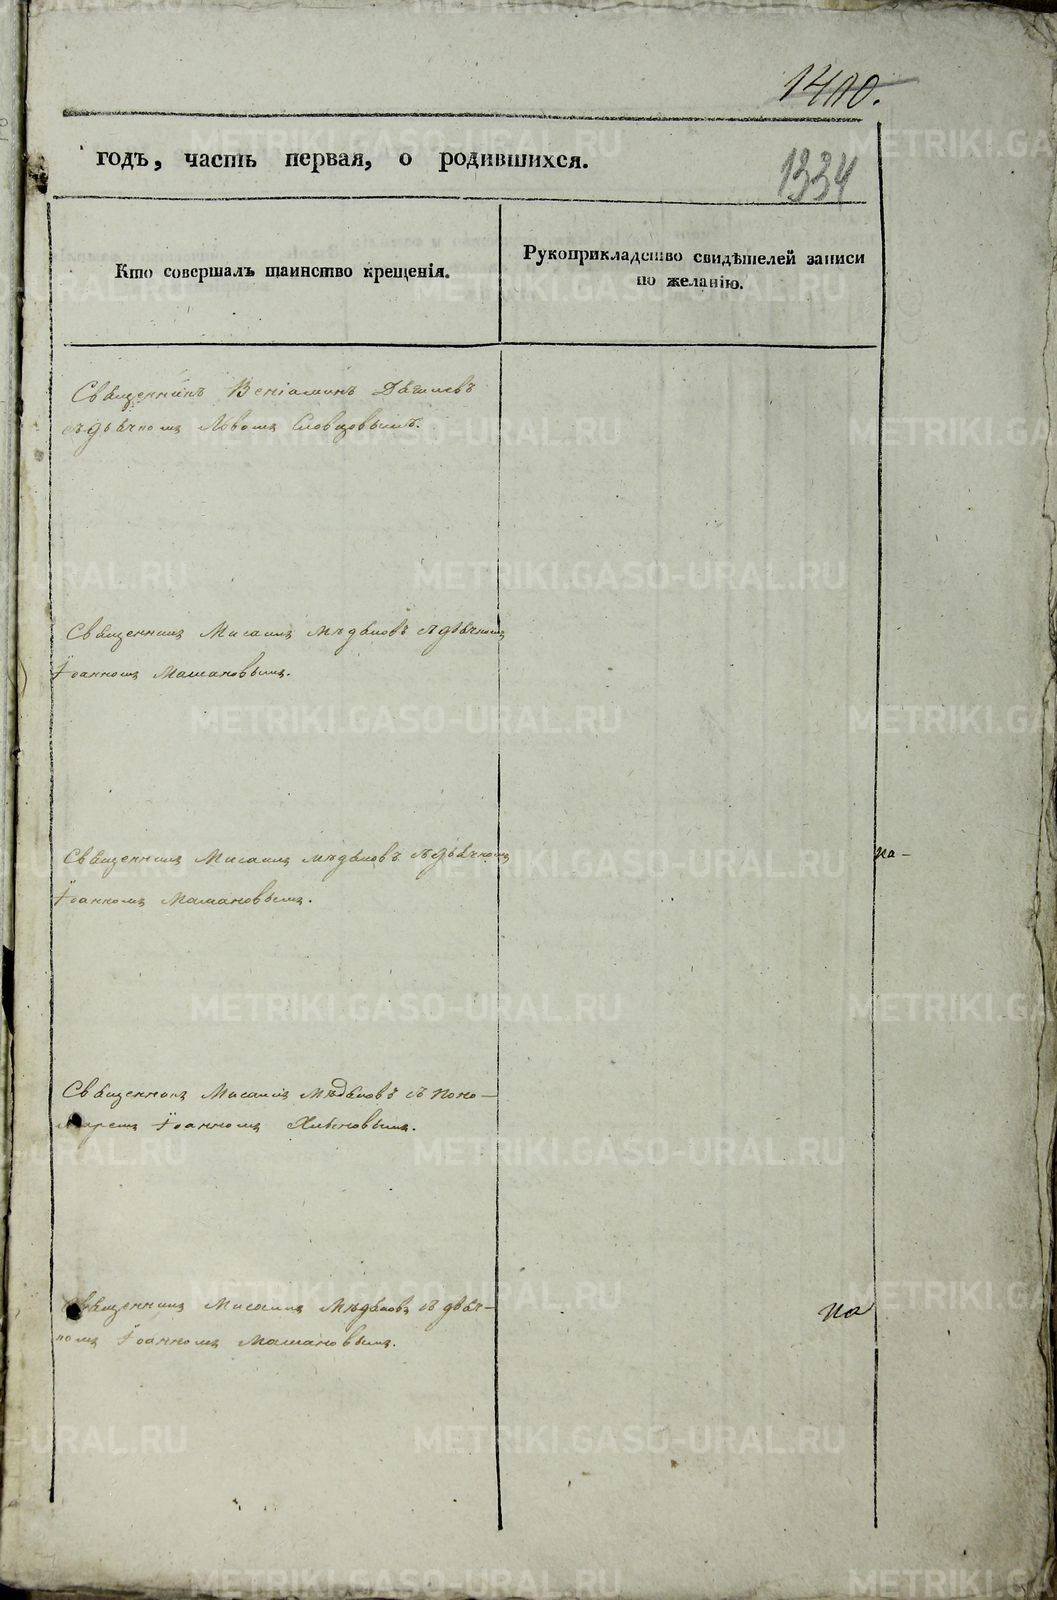 1400.
годъ, часть первая, о родившихся.
1334
Кто совершалъ таинство крещенія.
Рукоприкладство свидѣтелей записи
по желанію.
Священникъ Веніаминъ
съ дьячкомъ Львомъ Словцовымъ.
Священникъ Мисаилъ Мѣдяковъ съ дьячкомъ
Іоанномъ Машановымъ.
Священникъ Мисаилъ Мѣдяковъ съ дьячкомъ
Іоанномъ Машановымъ.
на-
Священникъ Мисаилъ Мѣдяковъ съ поно-
маремъ Іоанномъ
Священникъ Мисаилъ Мѣдяковъ съ дьяч-
комъ Іоанномъ Машановымъ.
на
METRIKI.GASO-URAL.RU